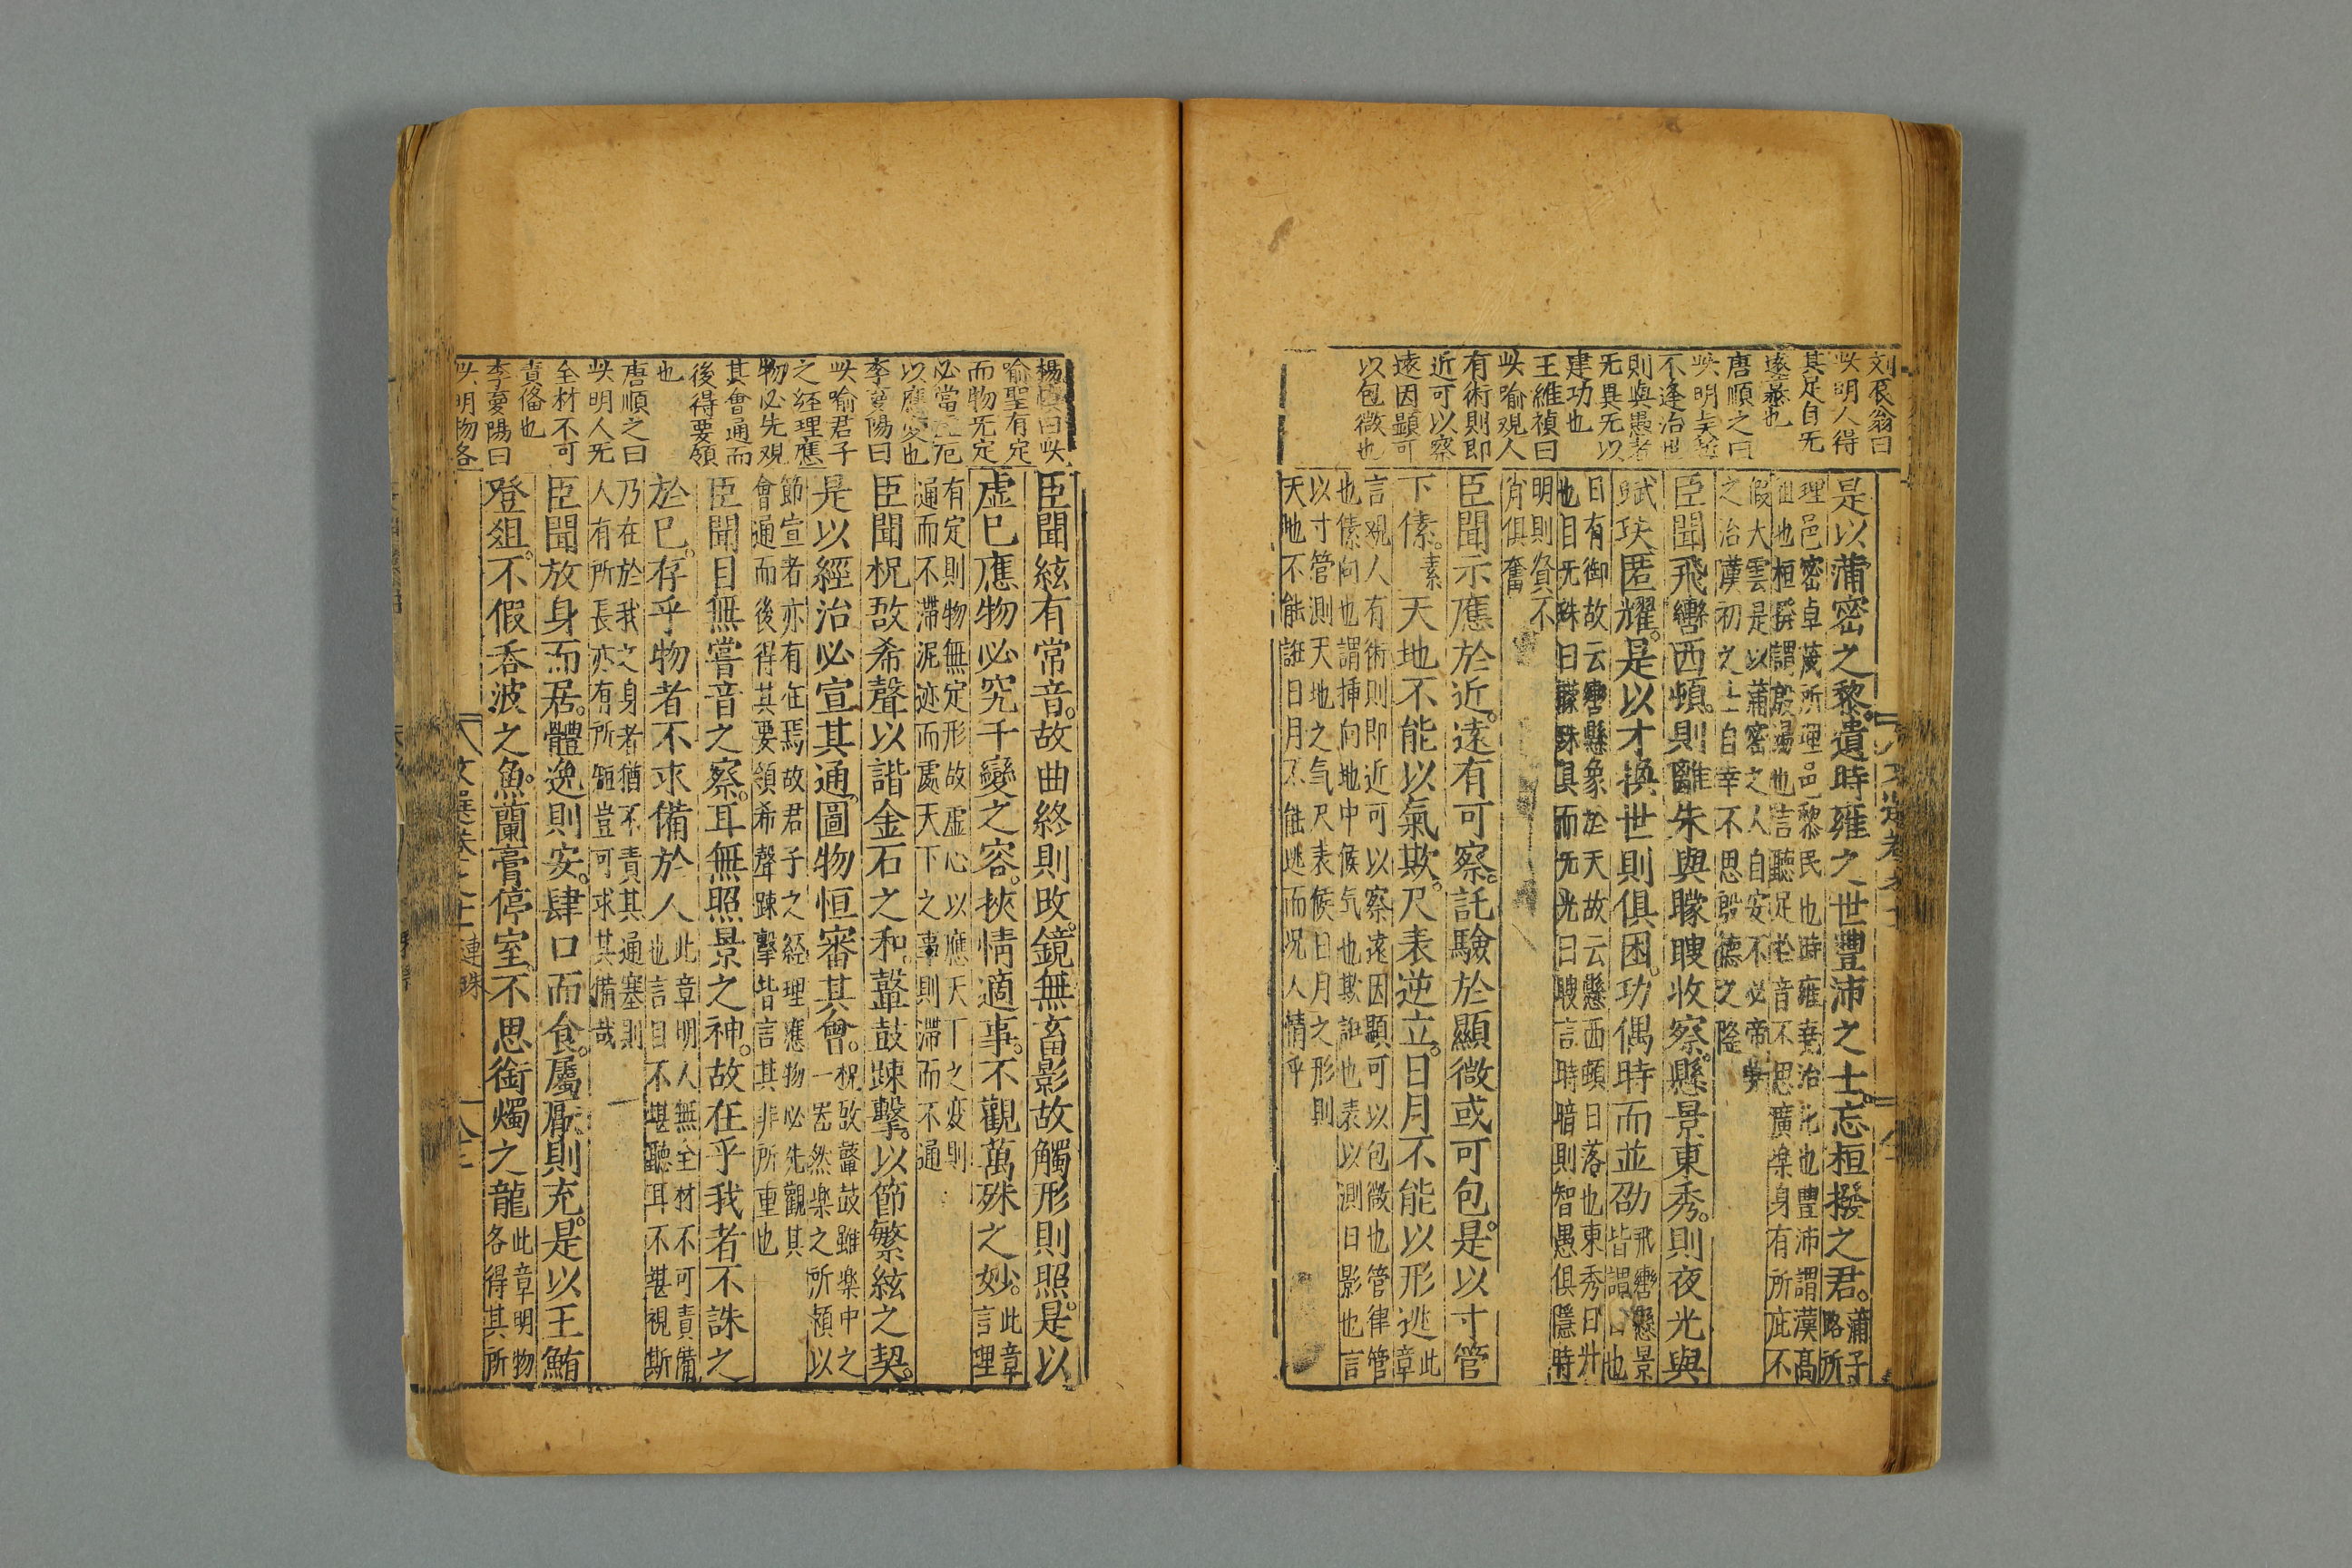 刘辰翁曰
此明人得
其足自无
遠慕也
唐順之曰
不逢治世
則與愚者
无異无以
建功也
王維禎曰
此喻观人
有術則即
近可以察
遠因顯可
以包微也
是以蒲密之黎遺時雍之世豐沛之士忘桓撥之君蒲子路所
理邑密卓茂所理邑黎民也時雍堯治化也豐沛謂漢高
祖也桓撥謂殷湯也言聽足於音不思廣楽身有所庇不
假大雲是以蒲密之人自安不必帝堯
之治漢初之士自幸不思殷德之隆
臣聞飛轡西頓則離朱與矇瞍收察懸景東秀則夜光與
珷玞匿耀是以才換世則俱困功偶時而並劭飛轡懸景皆謂日也
日有御故云轡懸象於天故云懸西頓日落也東秀日升
也目无珠曰矇珠具而无光曰瞍言時暗則智愚俱隱時
明則賢不
肖俱奮
臣聞示應於近遠有可察託驗於顯微或可包是以寸管
下傃素天地不能以氣欺尺表逆立日月不能以形逃此章
言观人有術則即近可以察遠因顯可以包微也管律管
也傃向也謂挿向地中候气也欺誑也表以測日影也言
以寸管測天地之气尺表候日月之形則
天地不能誑日月不能逃而况人情乎
楊慎曰此
喻聖有定
而物无定
必當虛己
以應变也
李夢陽曰
此喻君子
之経理應
物必先观
其會通而
後得要領
也
唐順之曰
此明人无
全材不可
責俻也
李夢陽曰
此明物各
臣聞絃有常音故曲終則改鏡無畜影故觸形則照是以
虛已應物必究千變之容挾情適事不觀萬殊之妙此章言理
有定則物無定形故虛心以應天下之変則
通而不滯泥迹而處天下之事則滯而不通
臣聞柷敔希聲以諧金石之和鼙鼓踈擊以節繁絃之契
是以經治必宣其通圖物恒審其會柷敔鼙鼓雖楽中之一器然楽之所須以
節宣者亦有在焉故君子之経理應物必先觀其
會通而後得其要領希聲踈擊皆言其非所重也
臣聞目無嘗音之察耳無照景之神故在乎我者不誅之
於已存乎物者不求備於人此章明人無全材不可責備也言目不堪聽耳不堪視斯
乃在於我之身者猶不責其通塞則
人有所長亦有所短豈可求其備哉
臣聞放身而居體逸則安肆口而食屬厭則充是以王鮪
登俎不假吞波之魚蘭膏停室不思銜燭之龍此章明物各得其所
文選卷 連珠